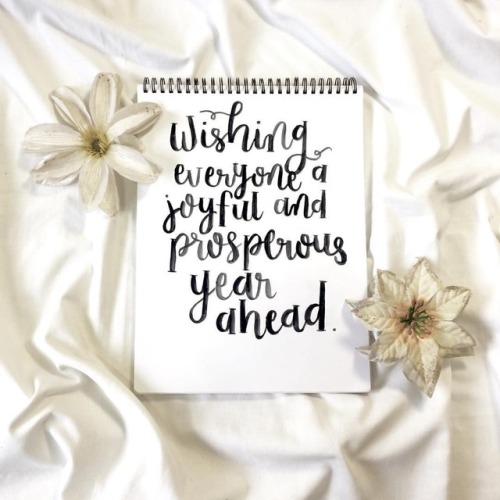 Wishing
everyone a
joyful and
prosperous
year
ahead.